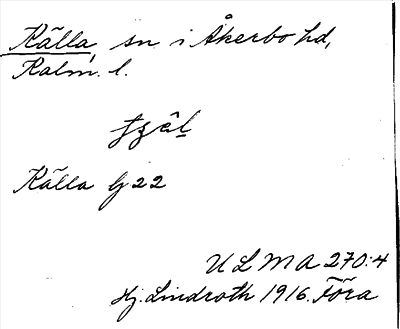 Källa, sn i Åkerbo hd,
Kalm. l.
Källa G 22
ULMA 270:4
Hj. Lindroth 1916. Föra